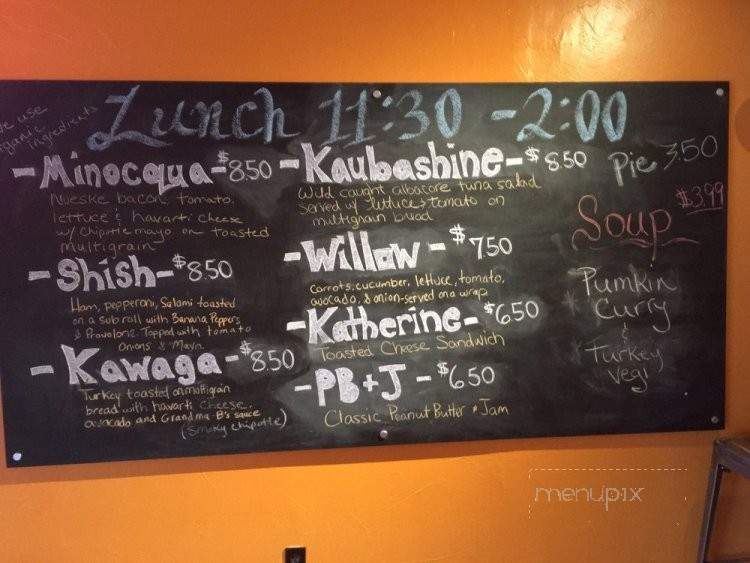 We use
organic
ingredients
Lunch 11:30 - 2:00
- Minocqua - $8.50
Nueske bacon, tomato,
lettuce & havarti cheese
w/ Chipotle mayo on toasted
multigrain
- Shish - $8.50
Ham, pepperoni, Salami toasted
on a sub roll with Banana Peppers
& Provolone. Topped with tomato
Onions & Mayo.
- Kawaga - $8.50
Turkey toasted on multigrain
bread with havarti cheese,
avocado and Grandma B's sauce
(smoky chipotle)
- Kaubashine - $8.50
Wild caught albacore tuna salad
served w/ lettuce & tomato on
multigrain bread
- Willow - $7.50
carrots, cucumber, lettuce, tomato,
avocado, & onion - served on a wrap
- Katherine - $6.50
Toasted Cheese Sandwich
- PB + J - $6.50
Classic Peanut Butter & Jam
Pie 3.50
$3.99
Soup
Pumkin
Curry
&
Turkey
Vegi
menupix